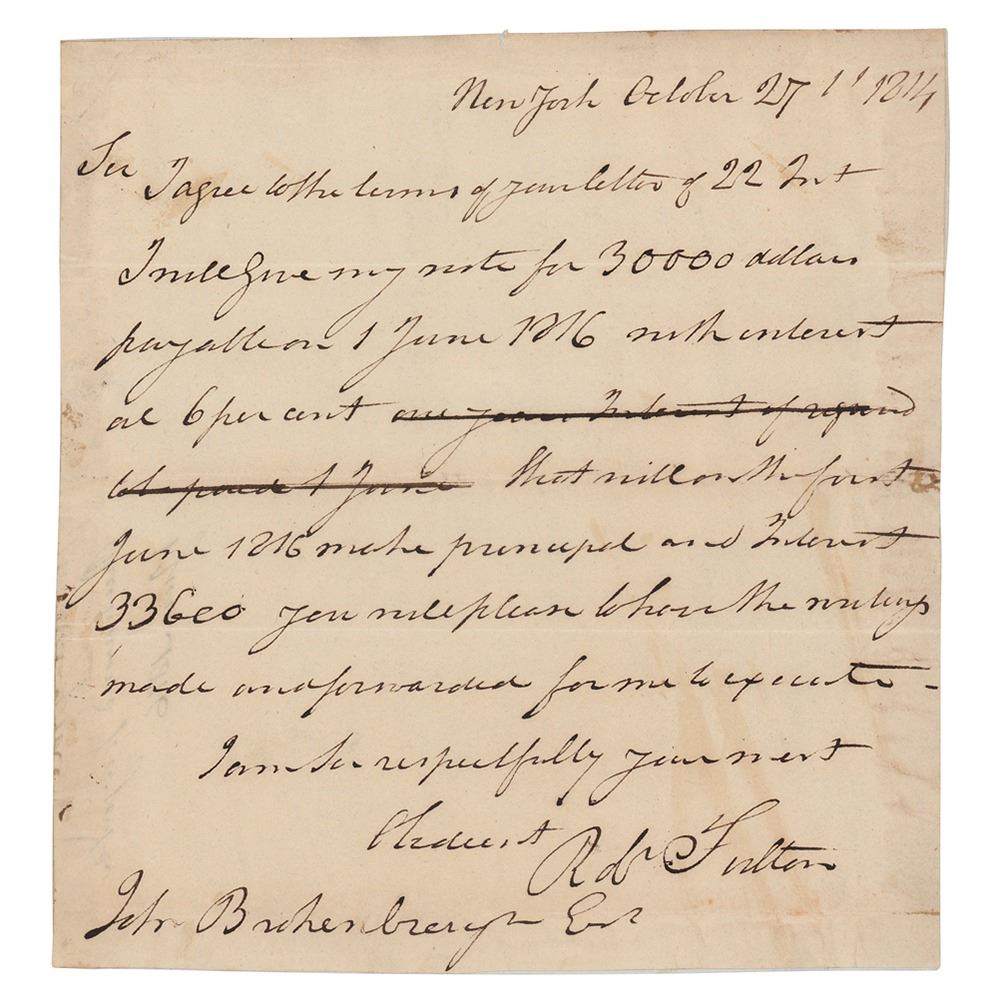 New York October 27th 1814
Sir
I agree to the terms of your letter of 22 Inst
I will Give my note for 30000 dollars
payable on 1 June 1816 with interest
at 6 per cent one years Interest if required
to be paid 1 June that will on the first
June 1816 make principal and Interest
33600 you will please to have the writings
made and forwarded for me to execute -
I am Sir respectfully your most
Obedient Robt Fulton
John Brokenbrough Esr